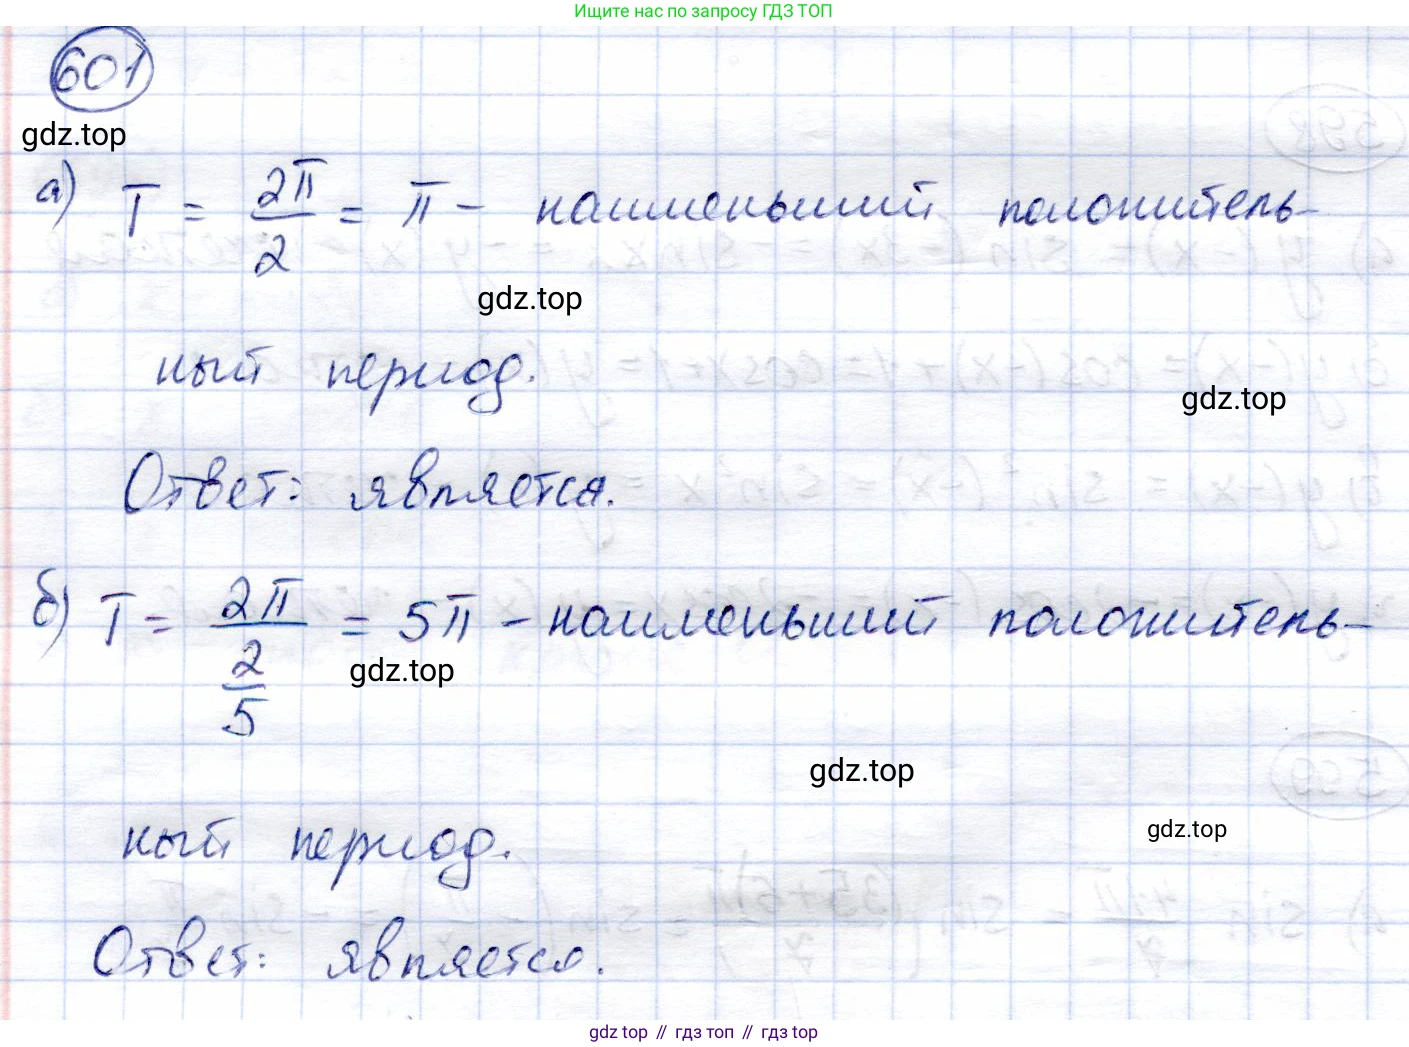 Ищите нас по запросу ГДЗ ТОП
601
gdz.top
а) T = 2π/2 = π - наименьший положитель-
gdz.top
ный период.
gdz.top
Ответ: является.
б) T = 2π/(2/5) = 5π - наименьший положитель-
gdz.top
gdz.top
gdz.top
ный период.
Ответ: является.
gdz top // гдз топ // гдз top